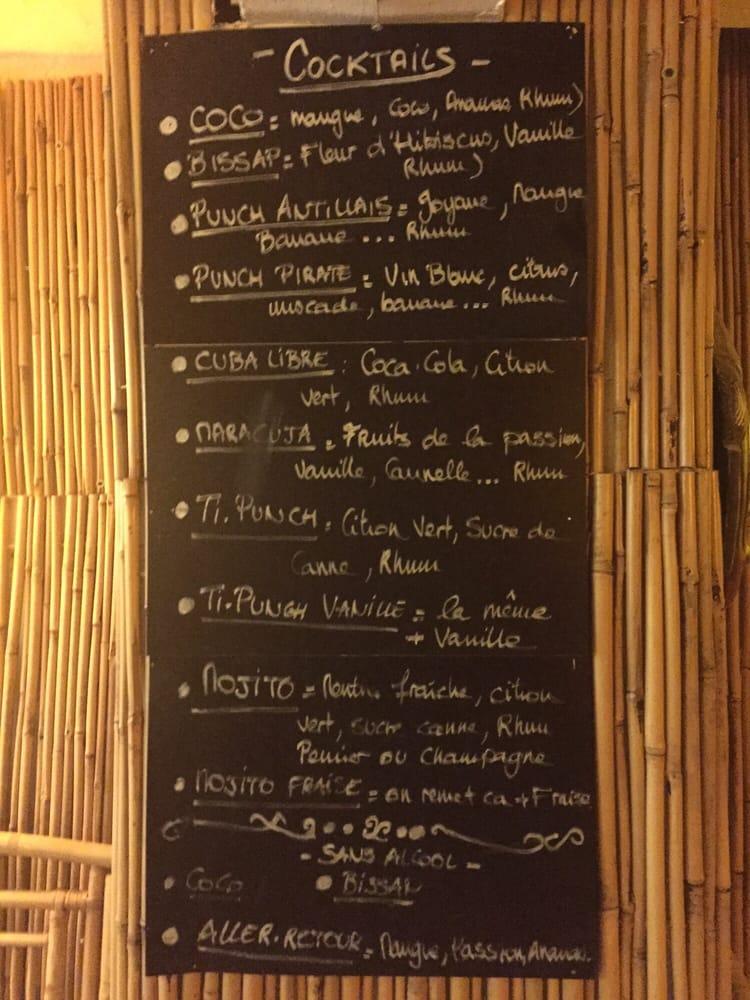 - COCKTAILS -
COCO = mangue, coco, Ananas Rhum)
BISSAP = Fleur d'Hibiscus, Vanille
Rhum)
PUNCH ANTILLAIS = goyave, Mangue
Banane ... Rhum
PUNCH PIRATE = Vin Blanc, citrus,
muscade, banane ... Rhum
CUBA LIBRE : Coca-Cola, Citron
vert, Rhum
MARACUJA = Fruits de la passion,
Vanille, Cannelle ... Rhum
TI.PUNCH = Citron Vert, Sucre de
Canne, Rhum
TI.PUNCH VANILLE = la même
+ Vanille
MOJITO = Menthe fraîche, citron
vert, sucre canne, Rhum
Perrier ou Champagne
MOJITO FRAISE = on remet ca + Fraise
- SANS ALCOOL -
COCO BISSAP
ALLER.RETOUR = Mangue, Passion, Ananas.